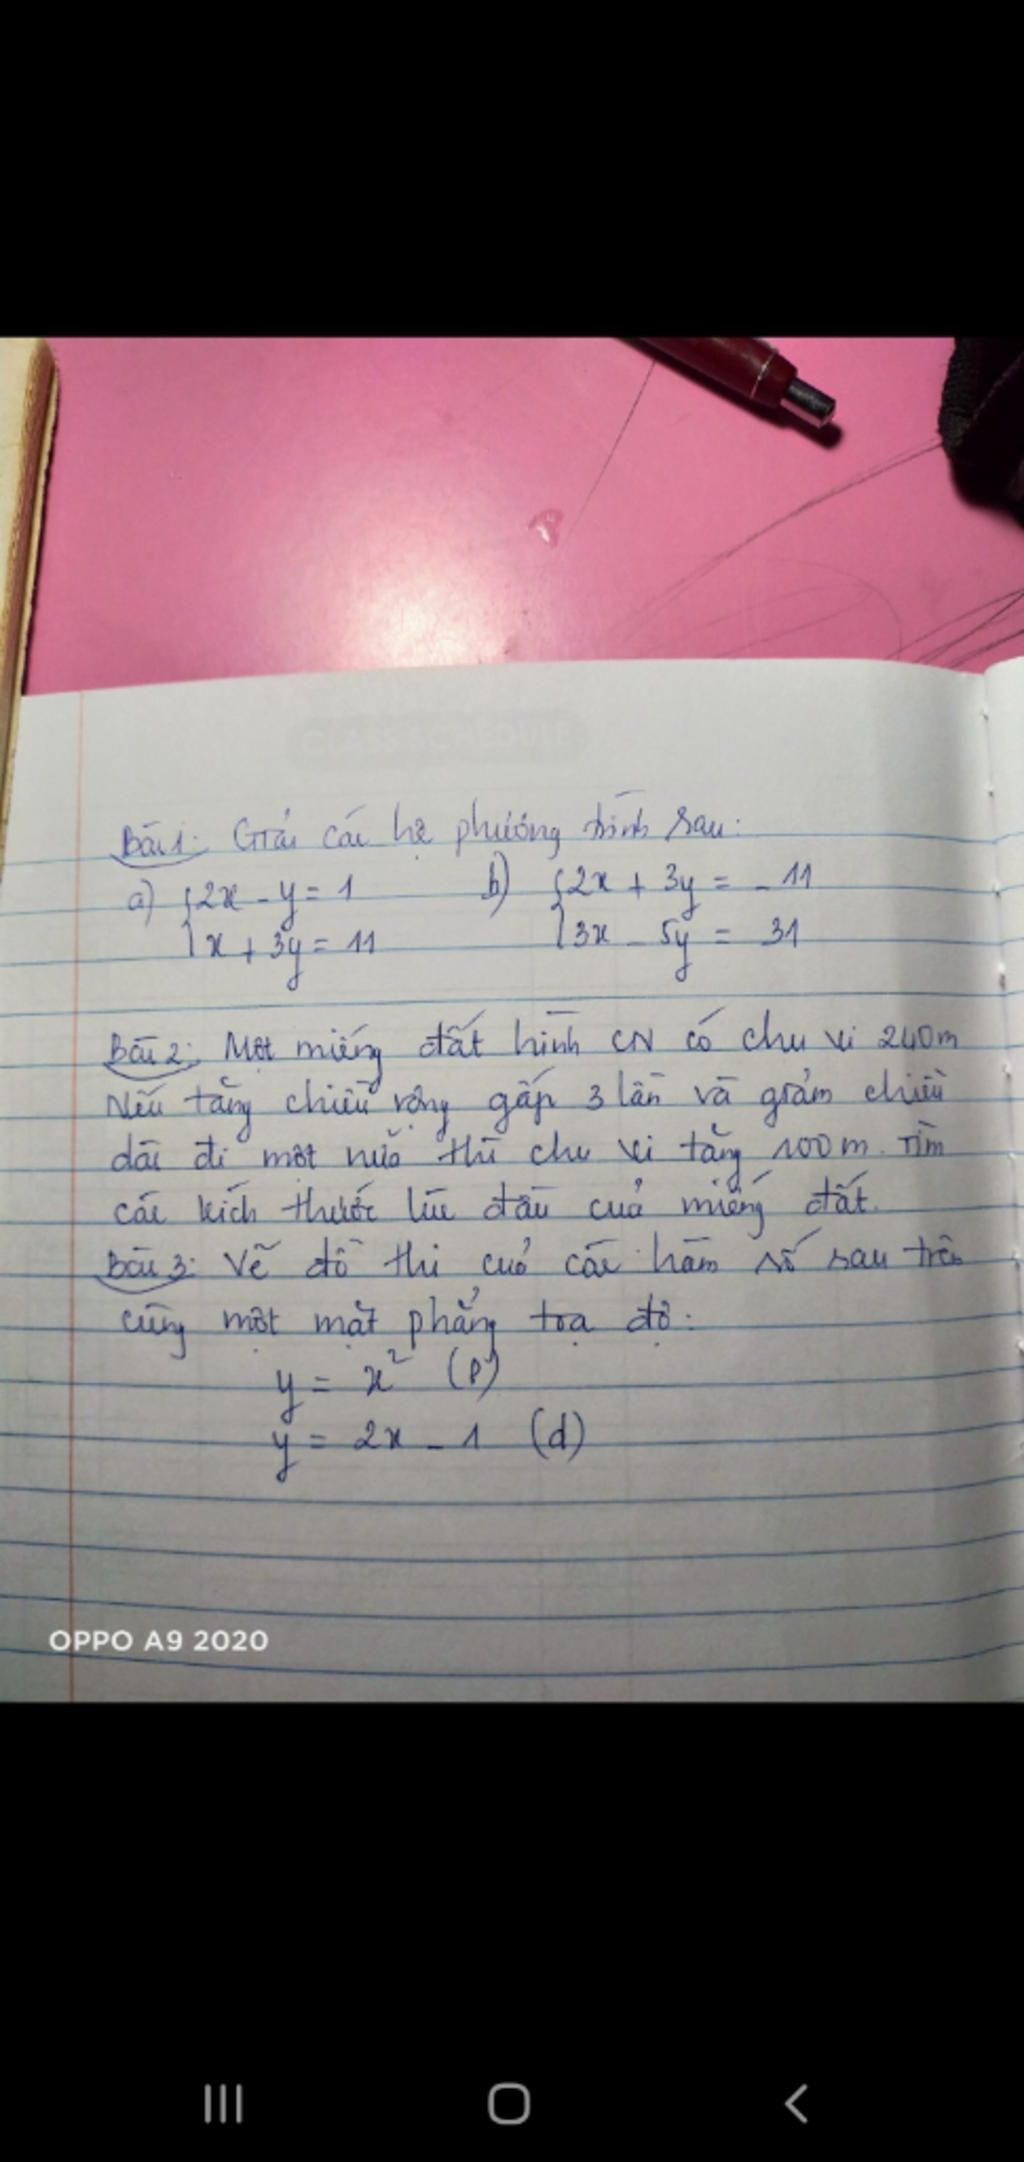 Bài 1: Giải các hệ phương trình sau:
a) { 2x - y = 1 b) { 2x + 3y = - 11
x + 3y = 11 3x - 5y = 31
Bài 2: Một miếng đất hình CN có chu vi 240m
Nếu tăng chiều rộng gấp 3 lần và giảm chiều
dài đi một nửa thì chu vi tăng 100m. Tìm
các kích thước lúc đầu của miếng đất.
Bài 3: Vẽ đồ thị của các hàm số sau trên
cùng một mặt phẳng tọa độ:
y = x² (P)
y = 2x - 1 (d)
OPPO A9 2020